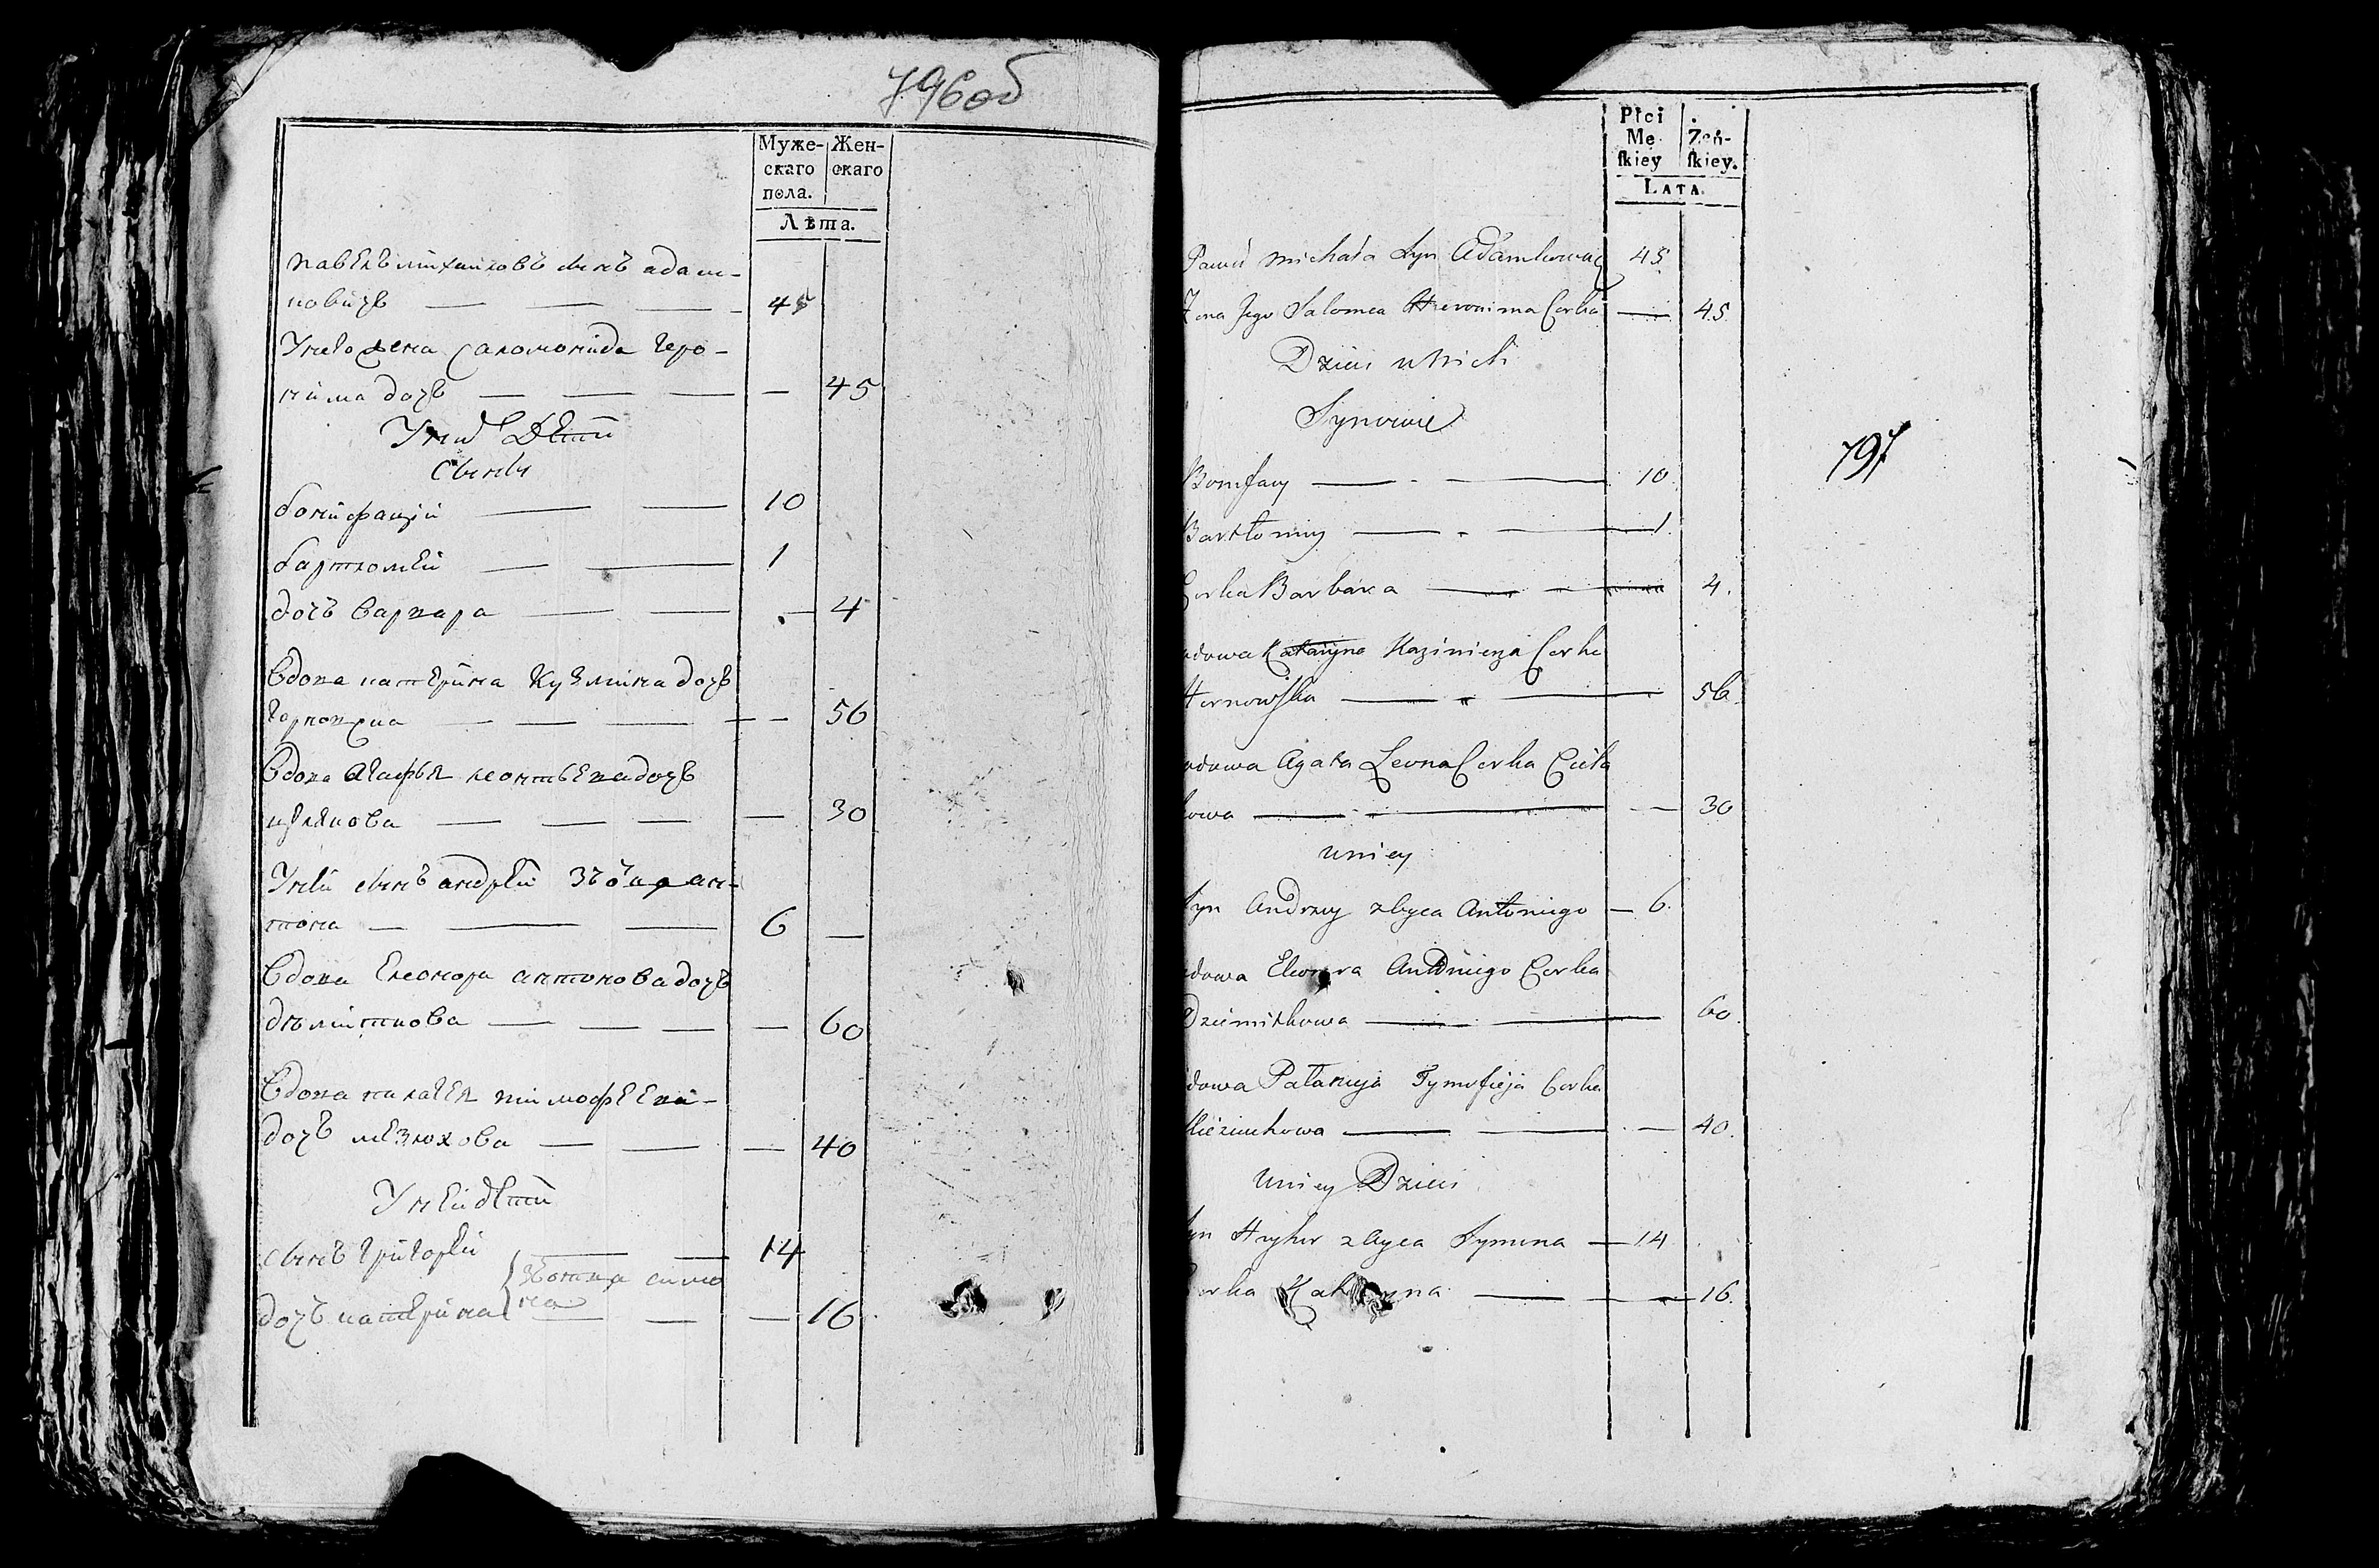 796об
Муже- Жен-
скаго скаго
пола.
Лѣта.
павелъ михаиловъ сынъ адам-
ковичь — — — 45
У него жена Саломонида Геро-
нима дочь — — — — 45
У них Дети
Сыны
бонифаций — — 10
бартломей — — 1
дочь Варвара — — — 4
Вдова катерина дочь
— — — — — 56
Вдова Агафья леонтьева дочь
цѣлякова — — — — 30
У ней сынъ андрей ан-
тона — — — 6 —
Вдова Елеонора антонова дочь
дѣмиткова — — — — 60
Вдова палагея тимофеева
дочь мезюхова — — — 40
У ней дети
сынъ григорей — — 14
симо
на
дочь катерина — — — 16
Płci
Mę Żeń-
ſkiey ſkiey.
LATA.
Paweł Michała Syn Adamkowicz 45.
Żona Jego Salomea Hieronima Corka — 45.
Dzieci u Nich
Synowie
Bonifacy — - — 10
Bartłomiey — - — 1.
Corka Barbara — — — 4.
dowa Katarzyna Kazimierza Corka
— — 56.
dowa Agata Leona Corka Ciela
kowa — — — 30
u Niey
Syn Andrzey zbyca Antoniego — 6.
dowa Eleonora Antoniego Corka
Dziemitkowa — — 60.
dowa Pałanieja Tymofieja Corka
Mieziukowa — — — 40.
u Niey Dzieci
yn Hryhor zbyca Symona — 14
orka Katarzyna — — 16.
797